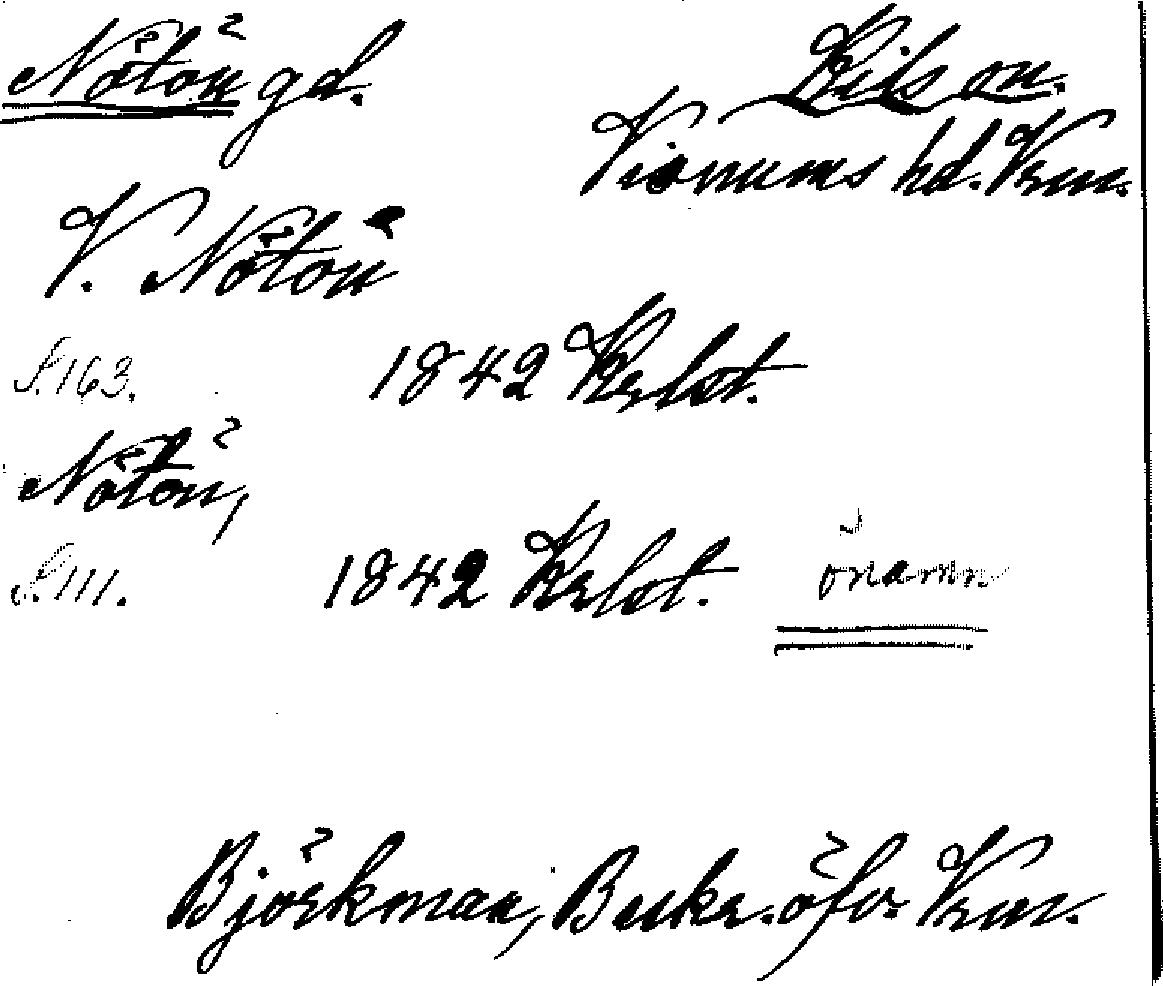 Nötön gd. Kils sn.
Visnums hd. Vrm.
V. Nötön
S. 163. 1842 Krlst.
Nötön,
S. 111. 1842 Krlst. önamn
Björkman, Beskr. öfv. Vrm.